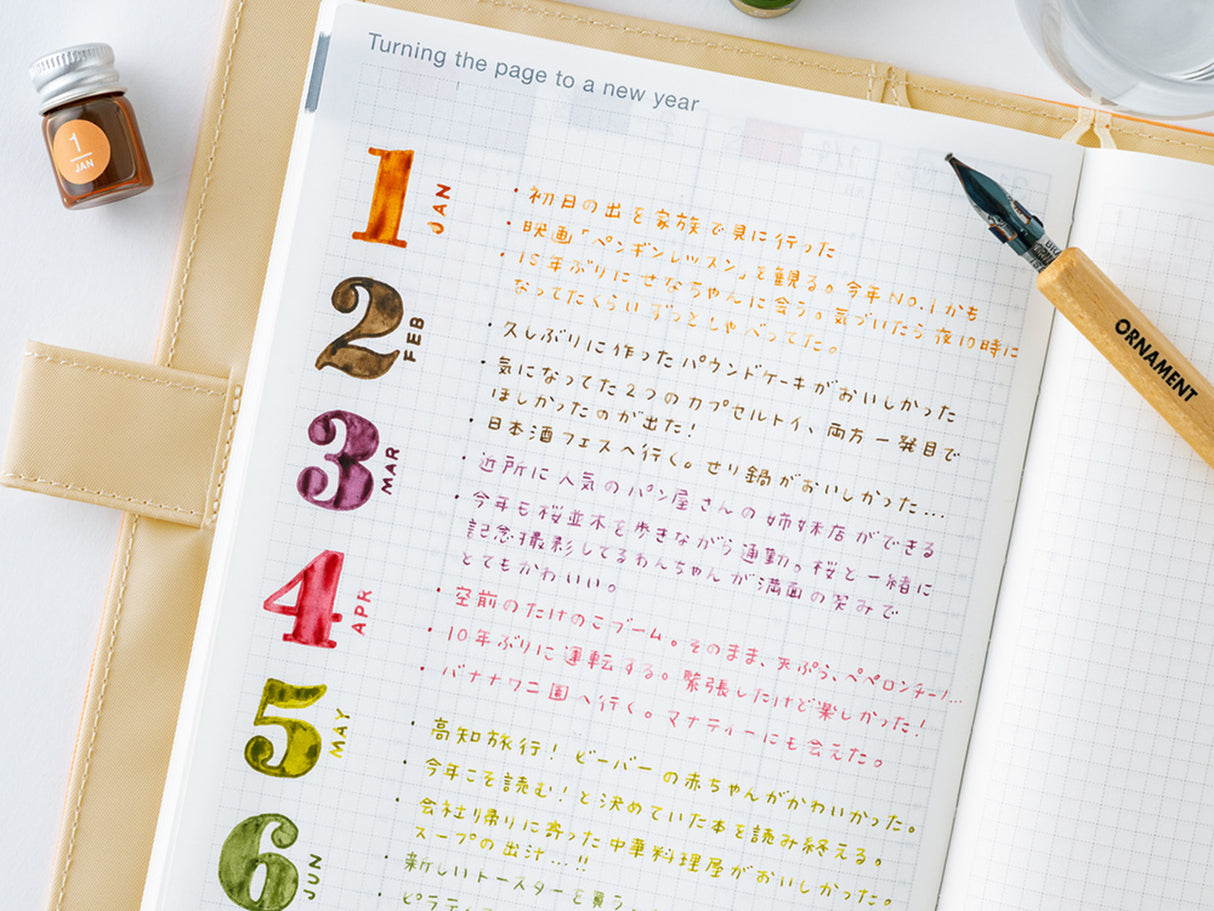 Turning the page to a new year
1
JAN
1
JAN
・初日の出を家族で見に行った
・映画「ペンギンレッスン」を観る。今年NO.1かも
・15年ぶりにせなちゃんに会う。気づいたら夜10時に
なってたくらいずっとしゃべってた。
2
FEB
・久しぶりに作ったパウンドケーキがおいしかった
・気になってた2つのカプセルトイ、両方一発目で
ほしかったのが出た!
・日本酒フェスへ行く。せり鍋がおいしかった…
3
MAR
・近所に人気のパン屋さんの姉妹店ができる
・今年も桜並木を歩きながら通勤。桜と一緒に
記念撮影してるわんちゃんが満面の笑みで
とてもかわいい。
4
APR
・空前のたけのこブーム。そのまま、天ぷら、ペペロンチーノ…
・10年ぶりに運転する。緊張したけど楽しかった!
・バナナワニ園へ行く。マナティーにも会えた。
5
MAY
・高知旅行! ビーバーの赤ちゃんがかわいかった。
・今年こそ読む!と決めていた本を読み終える。
・会社り帰りに寄った中華料理屋がおいしかった。
スープの出汁…!!
6
JUN
・新しいトースターを買う。
・ピラティス
ORNAMENT